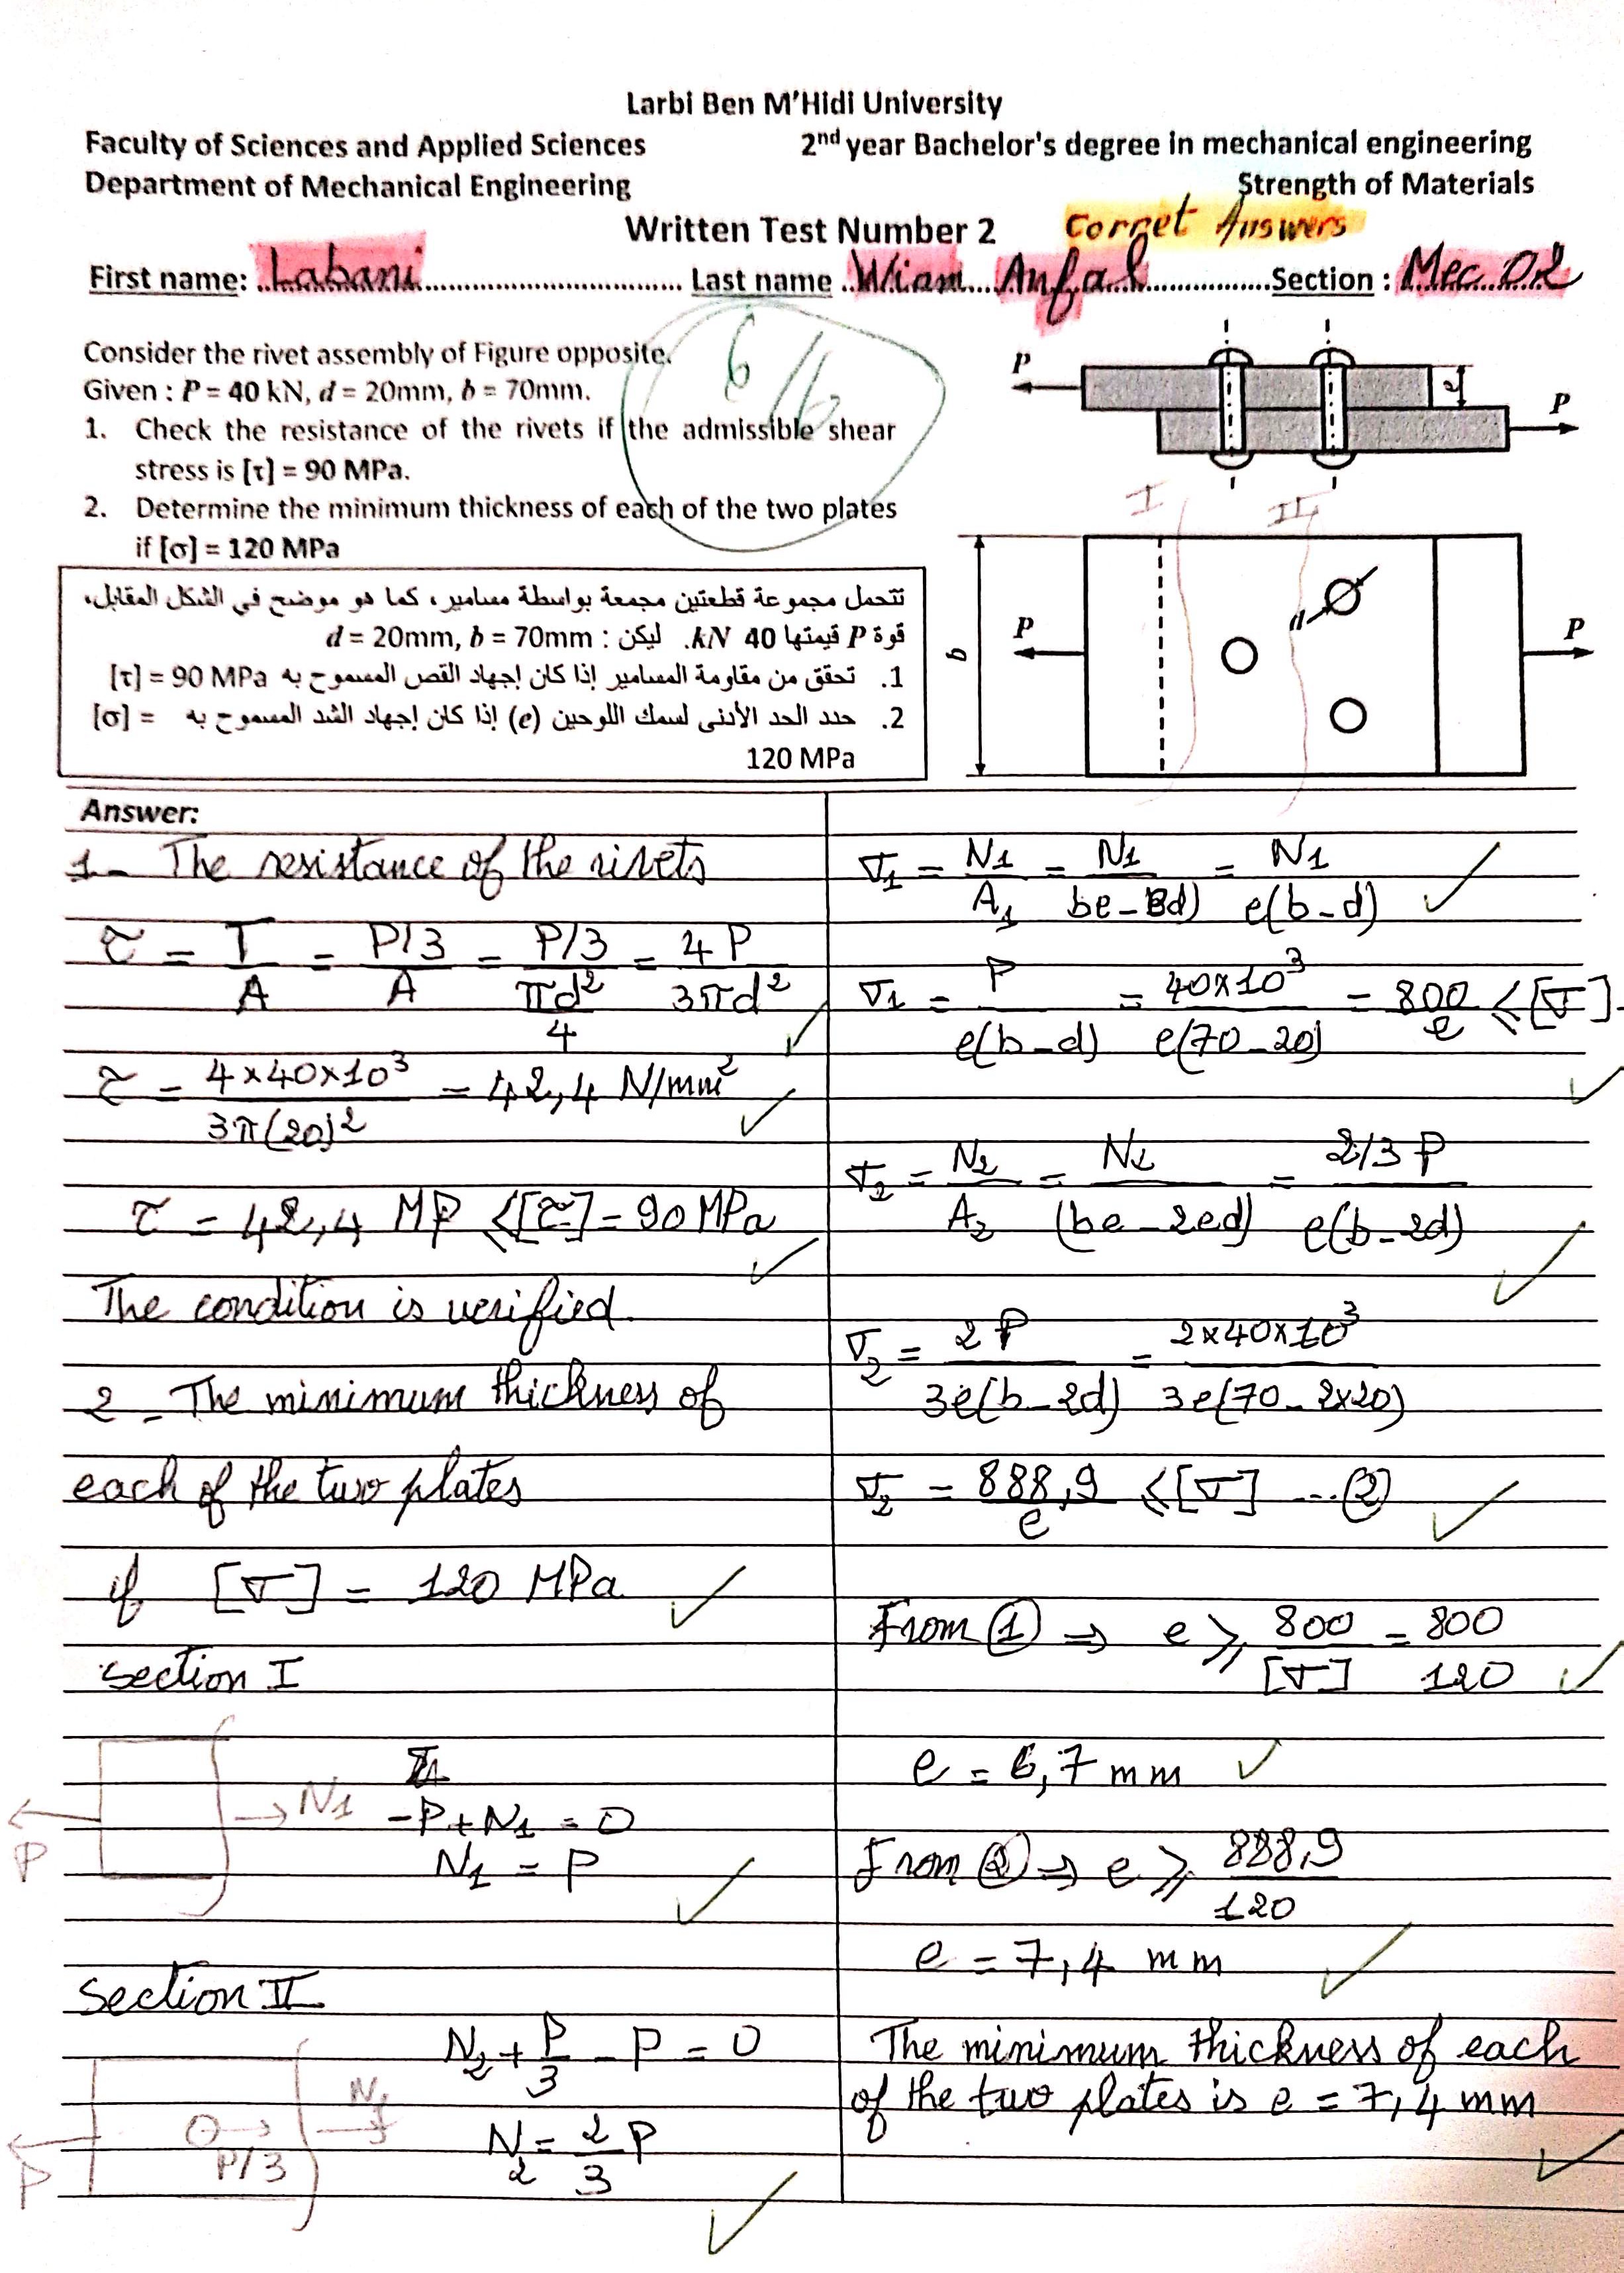 Larbi Ben M'Hidi University
Faculty of Sciences and Applied Sciences
2nd year Bachelor's degree in mechanical engineering
Department of Mechanical Engineering
Strength of Materials
Written Test Number 2 Corret Answers
First name: Labani Last name Wiam Anfal Section : Mec 02
Consider the rivet assembly of Figure opposite.
Given : P = 40 kN, d = 20mm, b = 70mm.
1. Check the resistance of the rivets if the admissible shear
stress is [τ] = 90 MPa.
2. Determine the minimum thickness of each of the two plates
if [σ] = 120 MPa
6/6
P
e
P
I
II
b
P
d
P
تتحمل مجموعة قطعتين مجمعة بواسطة مسامير، كما هو موضح في الشكل المقابل،
قوة P قيمتها 40 kN. ليكن : d = 20mm, b = 70mm
1. تحقق من مقاومة المسامير إذا كان إجهاد القص المسموح به [τ] = 90 MPa
2. حدد الحد الأدنى لسمك اللوحين (e) إذا كان إجهاد الشد المسموح به [σ] =
120 MPa
Answer:
1 - The resistance of the rivets
τ = T/A = P/3/A = P/3/πd²/4 = 4P/3πd²
τ = 4×40×10³/3π(20)² = 42,4 N/mm²
τ = 42,4 MP ≤ [τ] = 90 MPa
The condition is verified.
2 - The minimum thickness of
each of the two plates
if [σ] = 120 MPa
section I
P
N1
-P + N1 = 0
N1 = P
section II
P
P/3
N2 + P/3 - P = 0
N2 = 2/3 P
σ1 = N1/A1 = N1/be - ed) = N1/e(b-d)
σ1 = P/e(b-d) = 40×10³/e(70-20) = 800/e ≤ [σ]
σ2 = N2/A2 = N2/(be - 2ed) = 2/3 P/e(b-2d)
σ2 = 2P/3e(b-2d) = 2×40×10³/3e(70-2×20)
σ2 = 888,9/e ≤ [σ] ...(2)
From (1) ⇒ e ≥ 800/[σ] = 800/120
e = 6,7 mm
From (2) ⇒ e ≥ 888,9/120
e = 7,4 mm
The minimum thickness of each
of the two plates is e = 7,4 mm